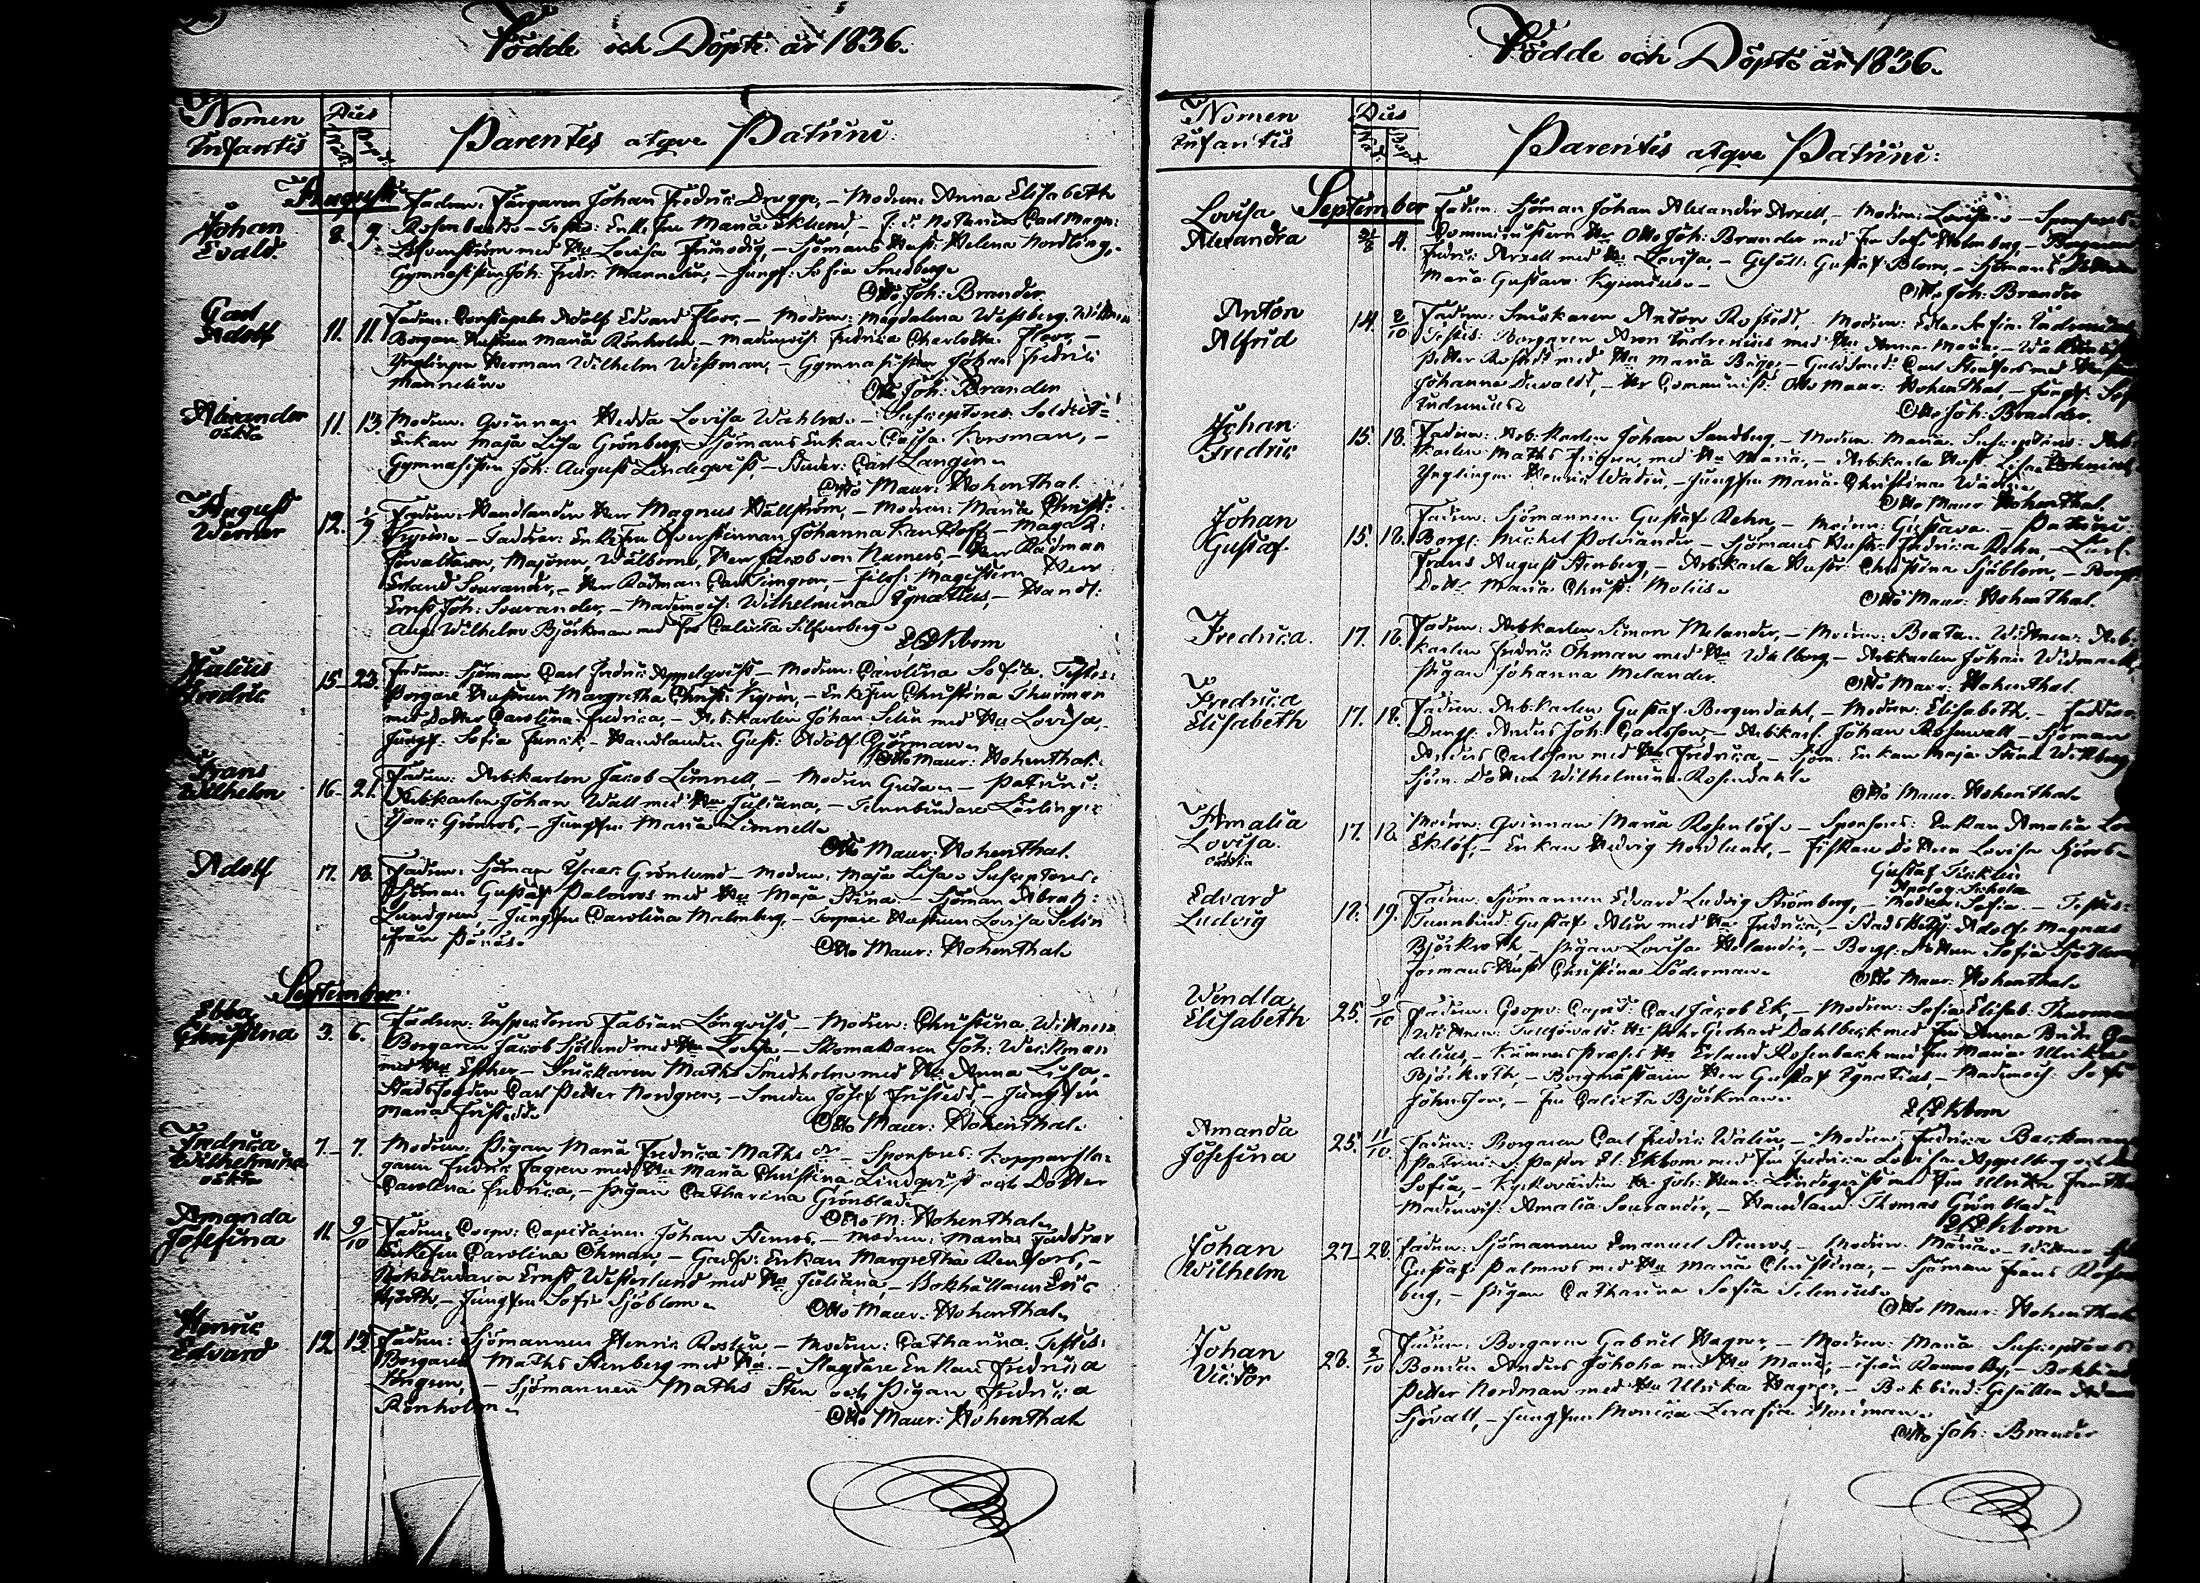 Födde och Döpte år 1836.
Nomen Infantis
Dies
Nat. Bapt.
Parentes atqve Patrini:
Augusti
Johan Evald.
8. 9.
Fadren: Färgaren Johan Fredric Drugge, – Modren: Anna Elisabeth
Rosenback – Testes: Enke Fru Maria Eklund, – Carl Magn:
Löfvenström med Hu Lovisa Frimodig, – Sjömans Hust: Helena Nordling,
Gymnasisten Joh: Fredr: Mannelin, – Jungf: Sofia Smedberg
Otto Joh: Brander.
Carl Adolf
11. 11.
Fadren: Constapeln Adolf Edvard Floor, – Modren: Magdalena Wessberg. Wittnen
Borgare Hustrun Maria Rönholm – Maduois: Fredrica Charlotta Floor, –
Ynglingen Herman Wilhelm Wessman, – Gymnasisten Johan Fredric
Mannelin
Otto Joh: Brander
Alexander
oäkta
11. 13.
Modren: Qvinnan Hedda Lovisa Wahlros – Susceptores: Soldat=
Enkan Maja Lisa Grönberg, Sjömans Enkan Cajsa Korsman, –
Gymnasisten Joh: August Lindeqvist, – Studer: Carl Langen
Otto Maur: Hohenthal.
August Werner
12. 1/9
Fadren: Handlanden Herr Magnus Hällström, – Modren: Maria Christ:
– Faddrar: Enke Fru Öfverstinnan Johanna – Magaz:
Förvaltaren, Majoren, Wälborne, Herr Jacob von Numers, – Herr Rådman
Erland Sourander, – Herr Rådman Carl Timgren, – Filos: Magistern Herr
Ernst Joh: Sourander, – Madmois: Wilhelmina Ignatius, – Handl:
Aug: Wilhelm Björkman med Fru Calixta Silfverberg
El Ekbom
Julius Fredric
15. 23.
Fadren: Sjöman Carl Fredric Appelqvist – Modren: Carolina Sofia. Testes:
Borgare Hustrun Margretha Christ: – Enke Fru Christina Thurman
med Dotter Carolina Fredrica, – Arb:karlen Johan Selin med Hu Lovisa,
Jungf: Sofia Funck – Handlanden Gust: Adolf Björkman
Otto Maur: Hohenthal.
Frans Wilhelm
16. 21.
Fadren: Arb:karlen Jacob Limnell, – Modren Greta – Patrini:
Arb:karlen Johan Wall med Hu Juliana, – Tunnbindare Lärling:
Isac Grönros, – Jungfru Maria Limnell
Otto Maur: Hohenthal.
Adolf
17. 18.
Fadren: Sjöman Isac Grönlund – Modren: Maja Lisa Susceptores:
Sjöman Gustaf Palmros med Hu Maja Stina – Sjöman Abrah:
Lundgren, – Jungfru Carolina Malmberg, – Torpare Hustrun Lovisa Selin
ifrån
Otto Maur: Hohenthal
September
Ebba Christina
3. 6.
Fadren: Inspectoren Fabian Lönqvist, – Modren: Christina. Wittnen
Borgaren Jacob Sjölund med Hu Lovisa – Skomakaren Joh: Weckman
med Hu Esther – Snickaren Maths Smedholm med Hu Anna Lisa,
Stadsfogden Carl Petter Nordgren, – Smeden Josef Fristedt, – Jungfru
Maria Fristedt
Otto Maur: Hohenthal.
Fredrica Wilhelmina
oäkta
7. 7.
Modren, Pigan Maria Fredrica Maths dr – Sponsores: Kopparsla=
garen Fredric Fagren med Hu Maria Christina Lindqvist och Dotter
Carolina Fredrica, – Pigan Catharina Grönblad
Otto M: Hohenthal
Amanda Josefina
11. 9/10
Fadren: Coopv: Capitainen Johan Stenros, – Modren: Maria Faddrar
Enke Fru Carolina Öhman, – Gastv: Enkan Margretha Renfors, –
Bokbindare Ernst Westerlund med Hu Juliana, – Bokhållaren Eric
Hjorth, – Jungfru Sofia Sjöblom
Otto Maur: Hohenthal
Henric Edvard
12. 13.
Fadren: Sjömannen Henric Roslin, – Modren: Catharina. Testes:
Borgaren Maths Stenberg med Hu – Slagtare Enkan Fredrica
Löngren, – Sjömannen Maths Sten och Pigan Fredrica
Rönholm
Otto Maur: Hohenthal
Födde och Döpte år 1836.
Nomen Infantis
Dies
Nat. Bapt.
Parentes atqve Patrini:
September
Lovisa Alexandra
4.
Fadren: Sjöman Johan Alexander Arzell, – Modren: Lovisa – Sponsores:
Comministern Hr Otto Joh: Brander med Fru Sofi Holmberg, – Borgaren
Fredric Arzell med Hu Lovisa, – Gesäll: Gustaf Blom, – Sjömans
Maria Gustava
Otto Joh: Brander
Anton Alfrid
14. 2/10
Fadren: Snickaren Anton Rostedt, Modren: Edla Sofia
Testes: Borgaren Aron med Hu Anna Maria –
Petter Rostedt med Hu Maria Båge, – Guldsmed: Carl Stenfors med
Johanna Dewaldt, – Hr Comminist: Otto Maur: Hohenthal, – Jungf: Sof
Otto Joh: Brander.
Johan Fredric
15. 18.
Fadren: Arb:karlen Johan Sandberg, – Modren: Maria Susceptores: Arb:
karlen Maths med Hu Maria, – Arb:karls Hust: Lisa
Ynglingen Henric Wadén, – Jungfru Maria Christina Wadén
Otto Maur: Hohenthal.
Johan Gustaf
15. 18.
Fadren: Sjömannen Gustaf Rehn, – Modren: Gustava – Patrini:
Borg: Michel Polviander – Sjömans Hustr: Fredrica Rehn, – Lärl:
Frans August Stenberg, – Arb:karls Hustr: Christina Sjöblom, – Borg:
Dott: Maria Christ: Moliis
Otto Maur: Hohenthal.
Fredrica.
17. 18.
Fadren: Arb:karlen Simon Melander, – Modren: Beata. Wittnen: Arb:
karlen Fredric Öhman med Hu Walborg – Arb:karlen Johan Widmark,
Pigan Johanna Melander.
Otto Maur: Hohenthal.
Fredrica Elisabeth
17. 18.
Fadren: Arb:karlen Gustaf Bergendahl, – Modren: Elisabeth – Faddrar:
Dreng: Anders Joh: Carlsson, – Arb:karl: Johan Rosenwall – Sjöman
Anders Carlsson med Hu Fredrica, – Sjöm: Enkan Maja Stina Wittberg
Sjöm: Dotter Wilhelmina Rosendahl
Otto Maur: Hohenthal
Amalia Lovisa.
oäkta
17. 18.
Modren: Qvinnan Maria Rosenlöf – Sponsores: Enkan Amalia Lov
Eklöf, – Enkan Hedvig Nordlund, – Fiskare Dottren Lovisa
Gustaf
Apolog. Schola
Edvard Ludvig
18. 19.
Fadren: Sjömannen Edvard Ludvig Strömberg, – Modren: Sofia – Testes:
Tunnbind: Gustaf Alin med Hu Fredrica, – Stads Betj: Adolf Magnus
Björkroth, – Pigan Lovisa Helander, – Borg: Dottren Sofia Sjöblom
Formans Hust: Christina Söderman
Otto Maur: Hohenthal
Wendla Elisabeth
25. 9/10
Fadren: Coopv: Capit: Carl Jacob Ek, – Modren: Sofia Elisab: Thurman
Wittnen: Tullförvalt: Hr Pehr Gerhard Dahlbeck med Fru Anna Brita
delius, – Kämners Præses Hr Erland Rosenback med Fru Maria Ulrika
Björkroth, – Borgmästaren Herr Gustaf Ignatius, – Madmois: Sofi
Johnsson, – Fru Calixta Björkman
El Ekbom
Amanda Josefina
25. 11/10
Fadren: Borgaren Carl Fredric Walin, – Modren: Fredrica Backman
Patrini: Pastor El: Ekbom med Fru Fredrica Lovisa Appelberg och
Sofia, – Kyrkovärden Hr Joh: Henr: Lindeqvist med Fru Ulrika
Madmois: Amalia Sourander, – Handland: Thomas Grönblad
El Ekbom
Johan Wilhelm
27. 28.
Fadren: Sjömannen Emanuel Stenros, – Modren: Maria – Wittnen
Gustaf Palmros med Hu Maria Christina, – Sjöman Frans Rosen
berg, – Pigan Catharina Sofia Selenius
Otto Maur: Hohenthal
Johan Victor
28. 2/10
Fadren: Borgaren Gabriel Wagner, – Modren: Maria Susceptores
Bonden Anders Johoha med Hu Maria, – ifrån Raumo By, – Bokbind
Petter Nordman med Hu Ulrika Wagner, – Bokbind: Gesällen Adam
Sjövall, – Jungfrun Monica Serafia Noriman
Otto Joh: Brander